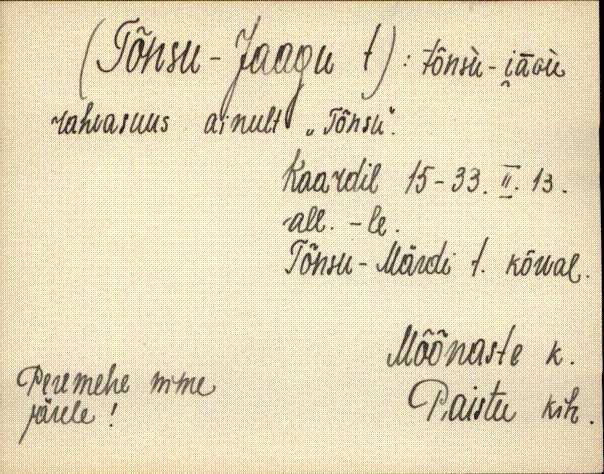 (Tõnsu-Jaagu t) : tõnsù-i̯āɢù
rahvasuus ainult „Tõnsu".
Kaardil 15-33. II. 13.
all. -le.
Tõnsu-Märdi t. kõrval.
Mõõnaste k.
Paistu kih.
Peremehe nime
järele!